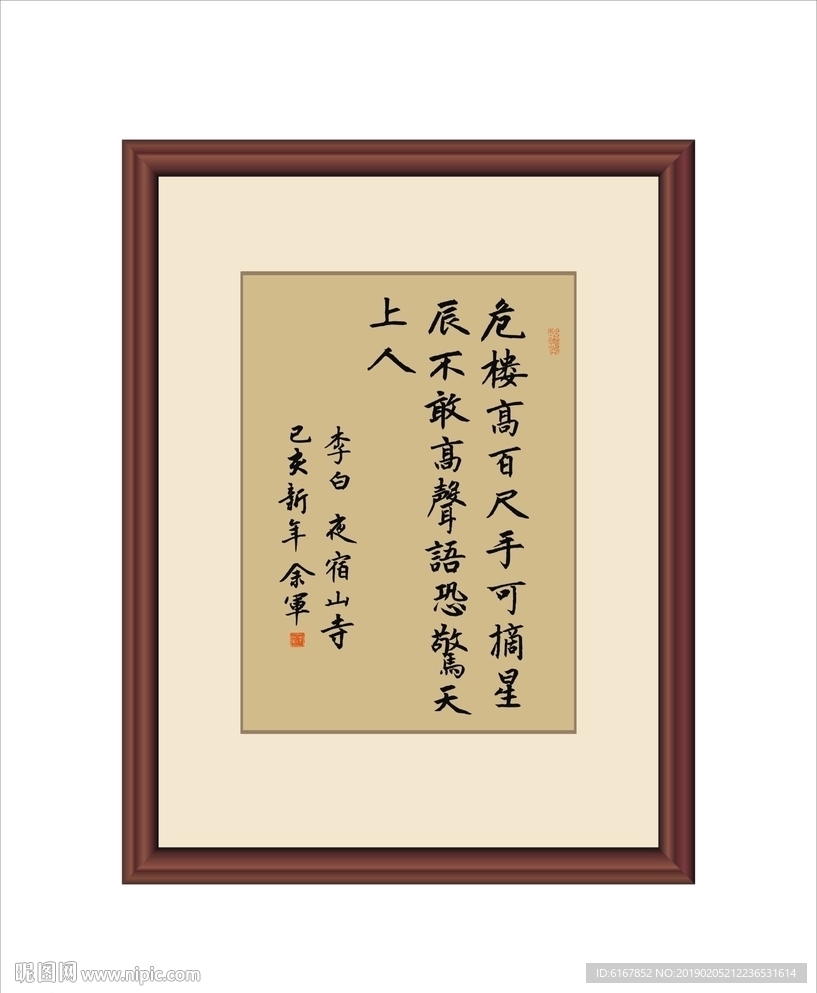 危楼高百尺手可摘星
辰不敢高聲語恐驚天
上人
李白 夜宿山寺
己亥新年余軍
昵图网 www.nipic.com
ID:6167852 NO:20190205212236531614